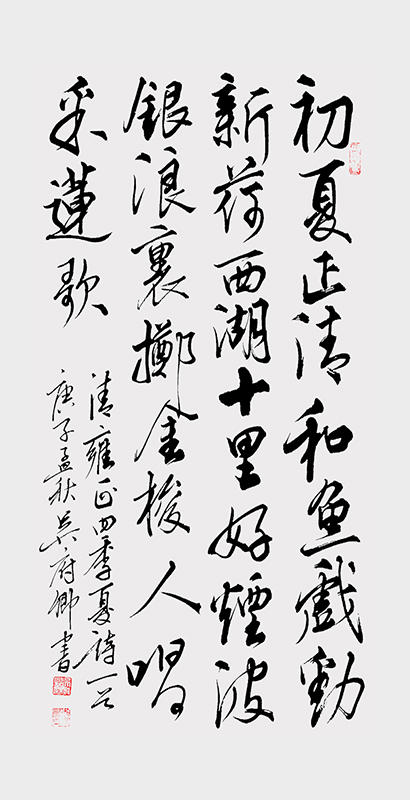 初夏正清和魚戲動
新荷西湖十里好煙波
銀浪裏擲金梭人唱
采蓮歌
清雍正四季夏詩一首
庚子孟秋吳府卿書